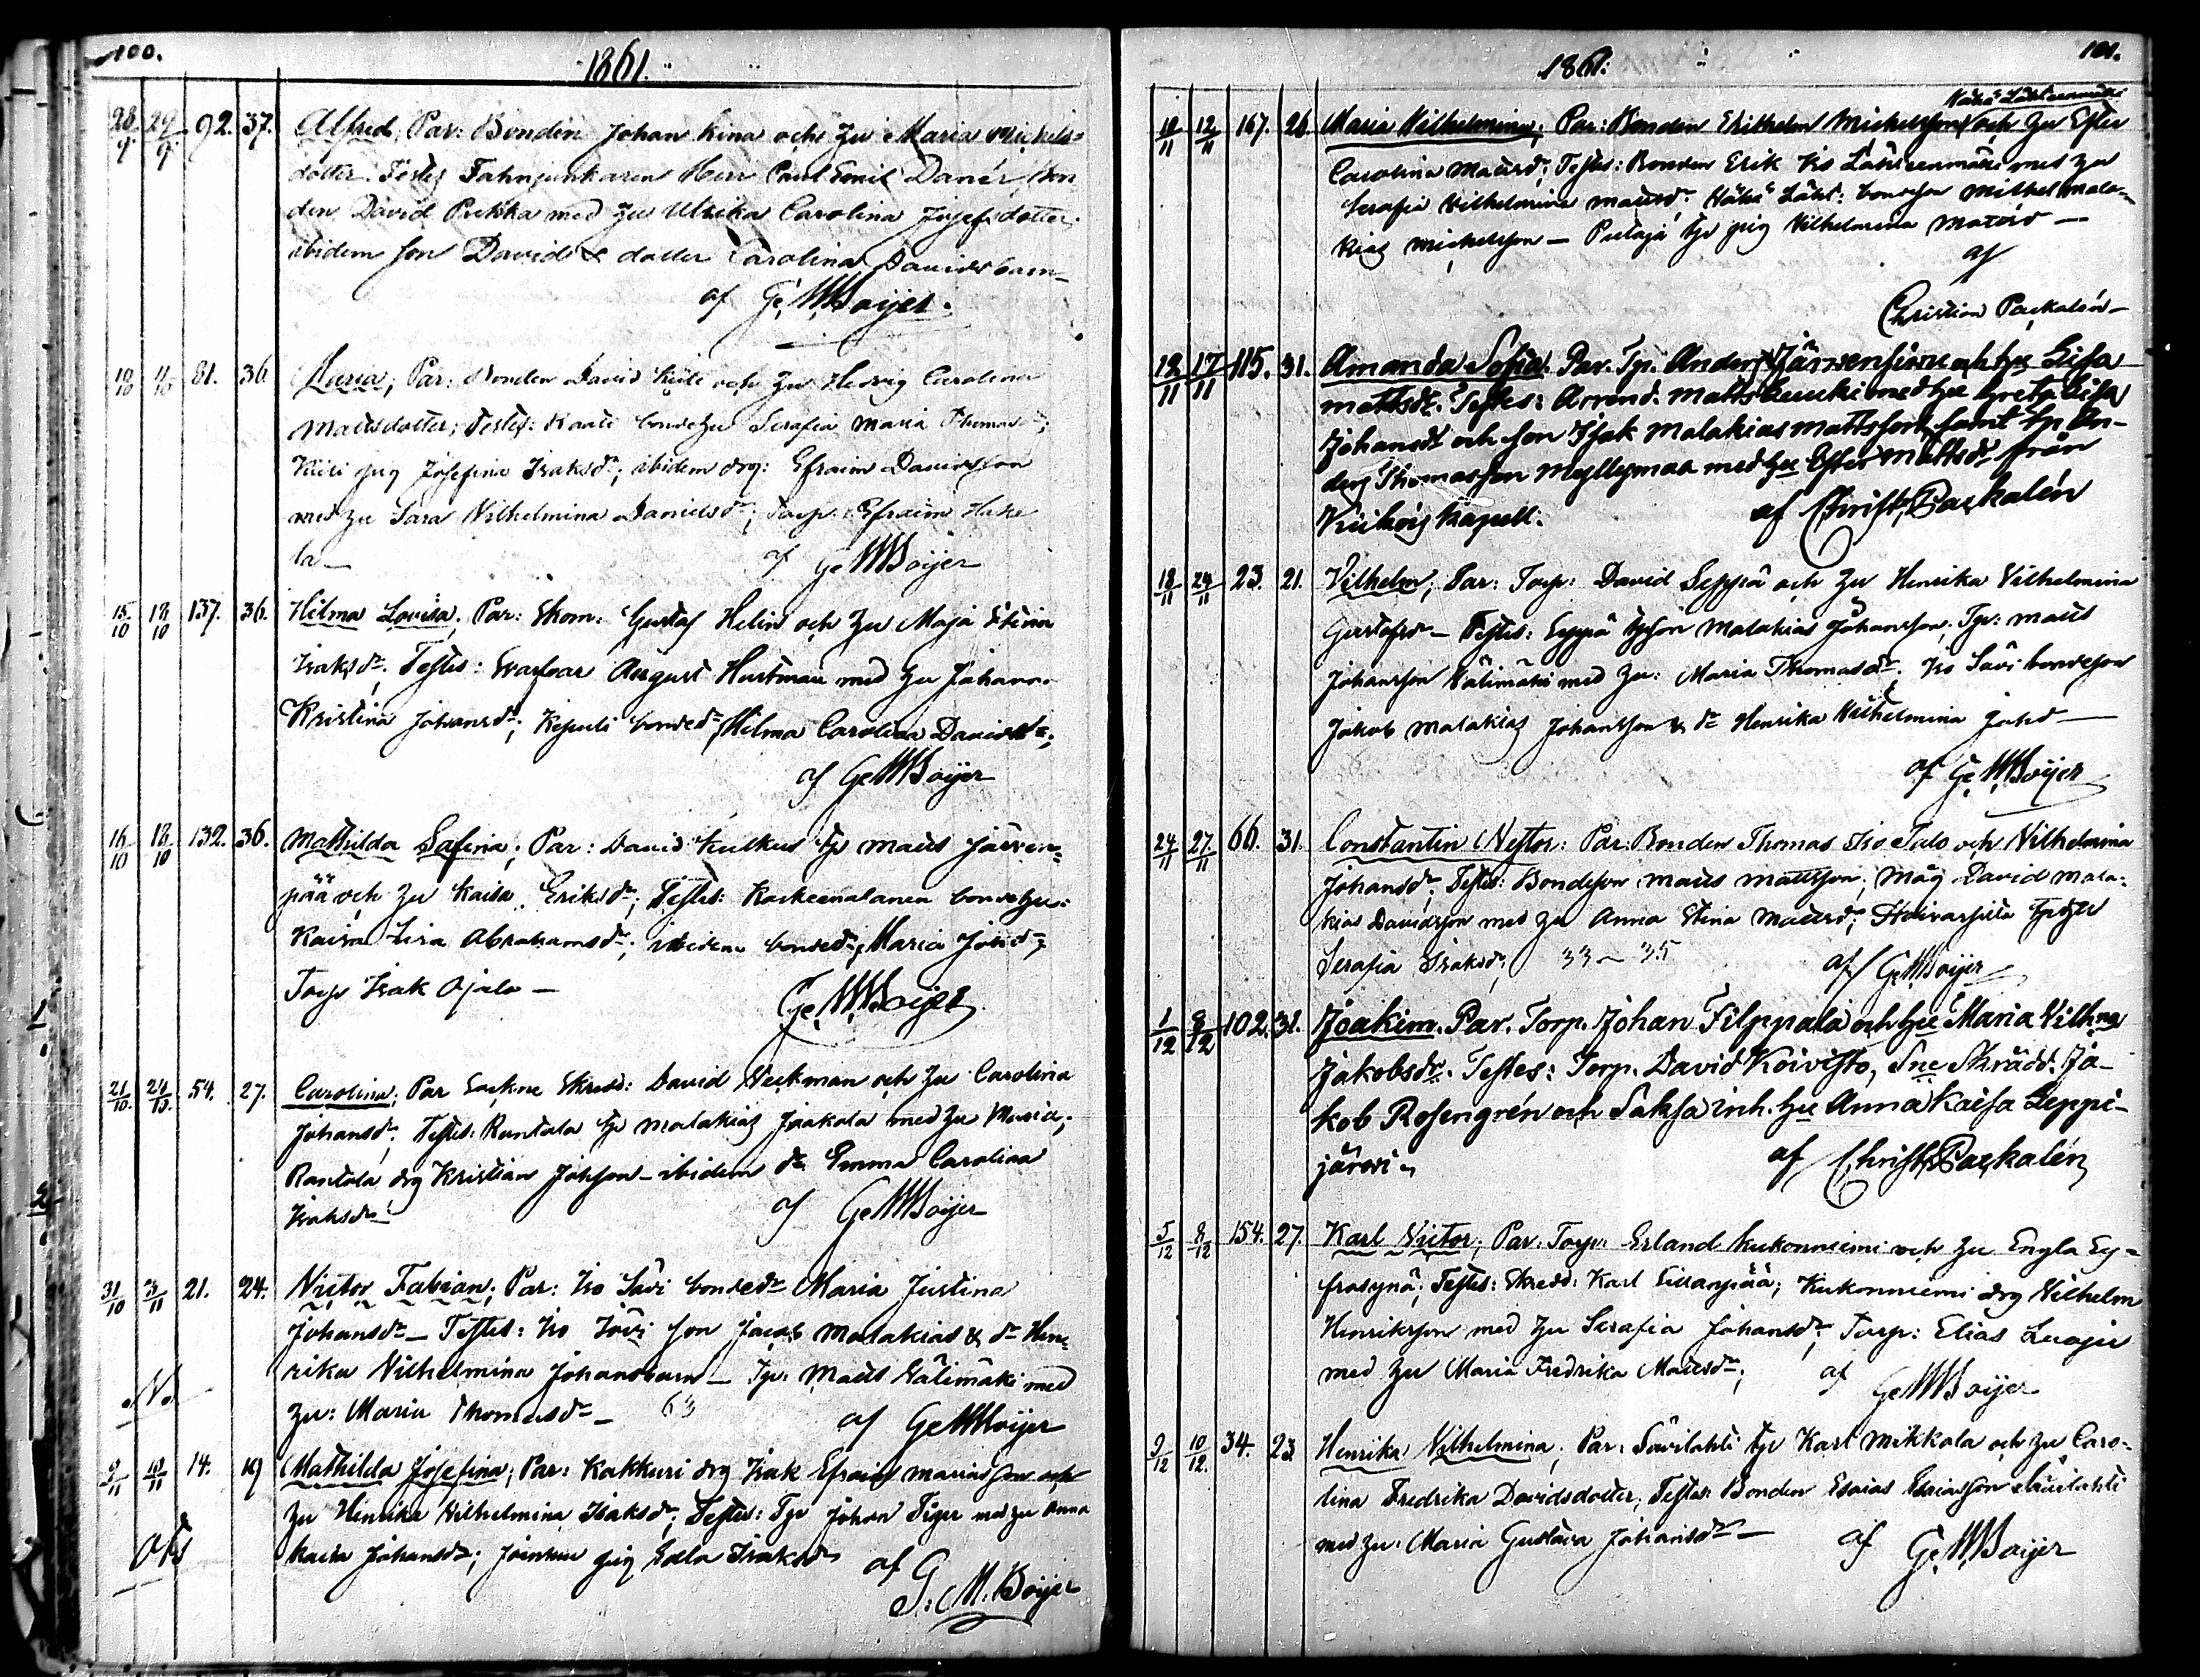 100.
1861.
28/9 29/9 92. 37. Alfred; Par: Bonden Johan Kina och hu Maria Michels=
dotter. Testes Fahnjunkaren Herr Paul Emil Danér, Bon
den David Pukka med hu Ulrika Carolina Josefsdotter.
ibidem son David & dotter Carolina Davidsbarn—
af G. M. Boijer.
10/10 11/10 81. 36. Maria; Par: Bonden David Kiili och hu Hedvig Carolina
Mattsdotter; Testes: Kaati bondehu Serafia Maria Thomasdr;
Kiili pig Josefina Isaksdr; ibidem drg: Efraim Davidsson
med hu Sara Vilhelmina Danielsdr; Torp: Efraim Hake
la— af G M Boijer
15/10 18/10 137. 36. Hilma Lovisa; Par: Skom: Gustaf Helin och hu Maja Stina
Isaksdr. Testes: Svarfvar August Hartman med hu Johanna
Kristina Johansdr; Kepuli bondedr Hilma Carolina Davidsdr;
af G M Boijer
16/10 18/10 132. 36. Mathilda Safina; Par: David Kulkus tp Matts Järven=
pää och hu Kaisa Eriksdr; Testes: Koskenalanen bondehu:
Kaisa Lisa Abrahamsdr; ibidem bondedr Maria Johdr;
Torp Isak Ojala—
G. M. Boijer
21/10 24/10 54. 27. Carolina; Par Sockne Skredd: David Veckman och hu Carolina
Johansdr; Testes: Rantala tp Malakias Jaakola med hu Maria;
Rantala drg Kristian Johsson— ibidem dr Emma Carolina
Isaksdr af G M Boijer
31/10 3/11 21. 24. Victor Fabian; Par: Iso Sävi bondedr Maria Justina
Johansdr— Testes: Iso Sävi son Jacob Malakias & dr Hen=
rika Vilhelmina Johansbarn— Tp: Matts Välimäki med
No
hu: Maria Thomasdr— 63 af G M Boijer
9/11 10/11 14. 19 Mathilda Josefina; Par: Kakkuri drg Isak Efraim Mariasson och
hu Henrika Vilhelmina Isaksdr; Testes: Tp Johan Tiger med hu Anna
Kaisa Johansdr; pig Edla Isaksdr
af G. M. Boijer
101.
1861.
10/11 12/11 167. 26. Maria Vilhelmina; Par: Bonden Michelsson och hu Ester
Carolina Mattsdr; Testes: Bonden Erik Iso Lähteenmäki med hu
Serafia Vilhelmina Mattsdr. Häkä Läht: bondeson Mickel Mala=
kias Michelsson— tp pig Vilhelmina
af
Christian Paskalén—
12/11 17/11 115. 31. Amanda Sofia. Par. Tp. Anders Järvensivu och hu Lisa
Mattsdr. Testes: Arrend. Matts med hu Greta Lisa
Johansdr och son Isak Malakias Mattsson, samt tp An-
ders Thomasson Myllymaa med hu Ester Mattsdr från
Kiikois Kapell. af Christ. Paskalén
18/11 24/11 23. 21. Vilhelm; Par: Torp: David Seppä och hu Henrika Vilhelmina
Gustafsdr— Testes: Seppä tpson Malakias Johansson; Tp: Matts
Johansson Välimäki med hu: Maria Thomasdr. Iso Sävi bondeson
Jakob Malakias Johansson & dr Henrika Vilhelmina Johdr—
af G. M. Boijer
24/11 27/11 66. 31. Constantin Nestor: Par: Bonden Thomas Iso Talo och Vilhelmina
Johansdr; Testes: Bondeson Matts Mattsson; Måg David Mala=
kias Davidsson med hu Anna Stina Mattsdr;
Serafia Isaksdr, 33 – 35 af G M Boijer
1/12 8/12 102. 31. Joakim. Par. Torp. Johan Filppala och hu Maria Vilhna
Jakobsdr. Testes: Torp. David Koivisto, Sne Skrädd. Ja-
kob Rosengrén och Saksa inh. hu Anna Kaisa Leppi-
järvi. af Christ. Paskalén
5/12 8/12 154. 27. Karl Victor; Par: Torp: Erland Kukonniemi och hu Engla Ey=
frosynä; Testes: Skredd: Karl Sillanpää; Kukonniemi drg Vilhelm
Henriksson med hu Serafia Johansdr; Torp: Elias
med hu Maria Fredrika Mattsdr; af G M Boijer
9/12 10/12. 34. 23 Henrika Vilhelmina; Par: Savilahti tp Karl Mikkola och hu Caro=
lina Fredrika Davidsdotter; Testes: Bonden Esaias Esaiasson Savilahti
med hu: Maria Gustava Johansdr— af G. M Boijer